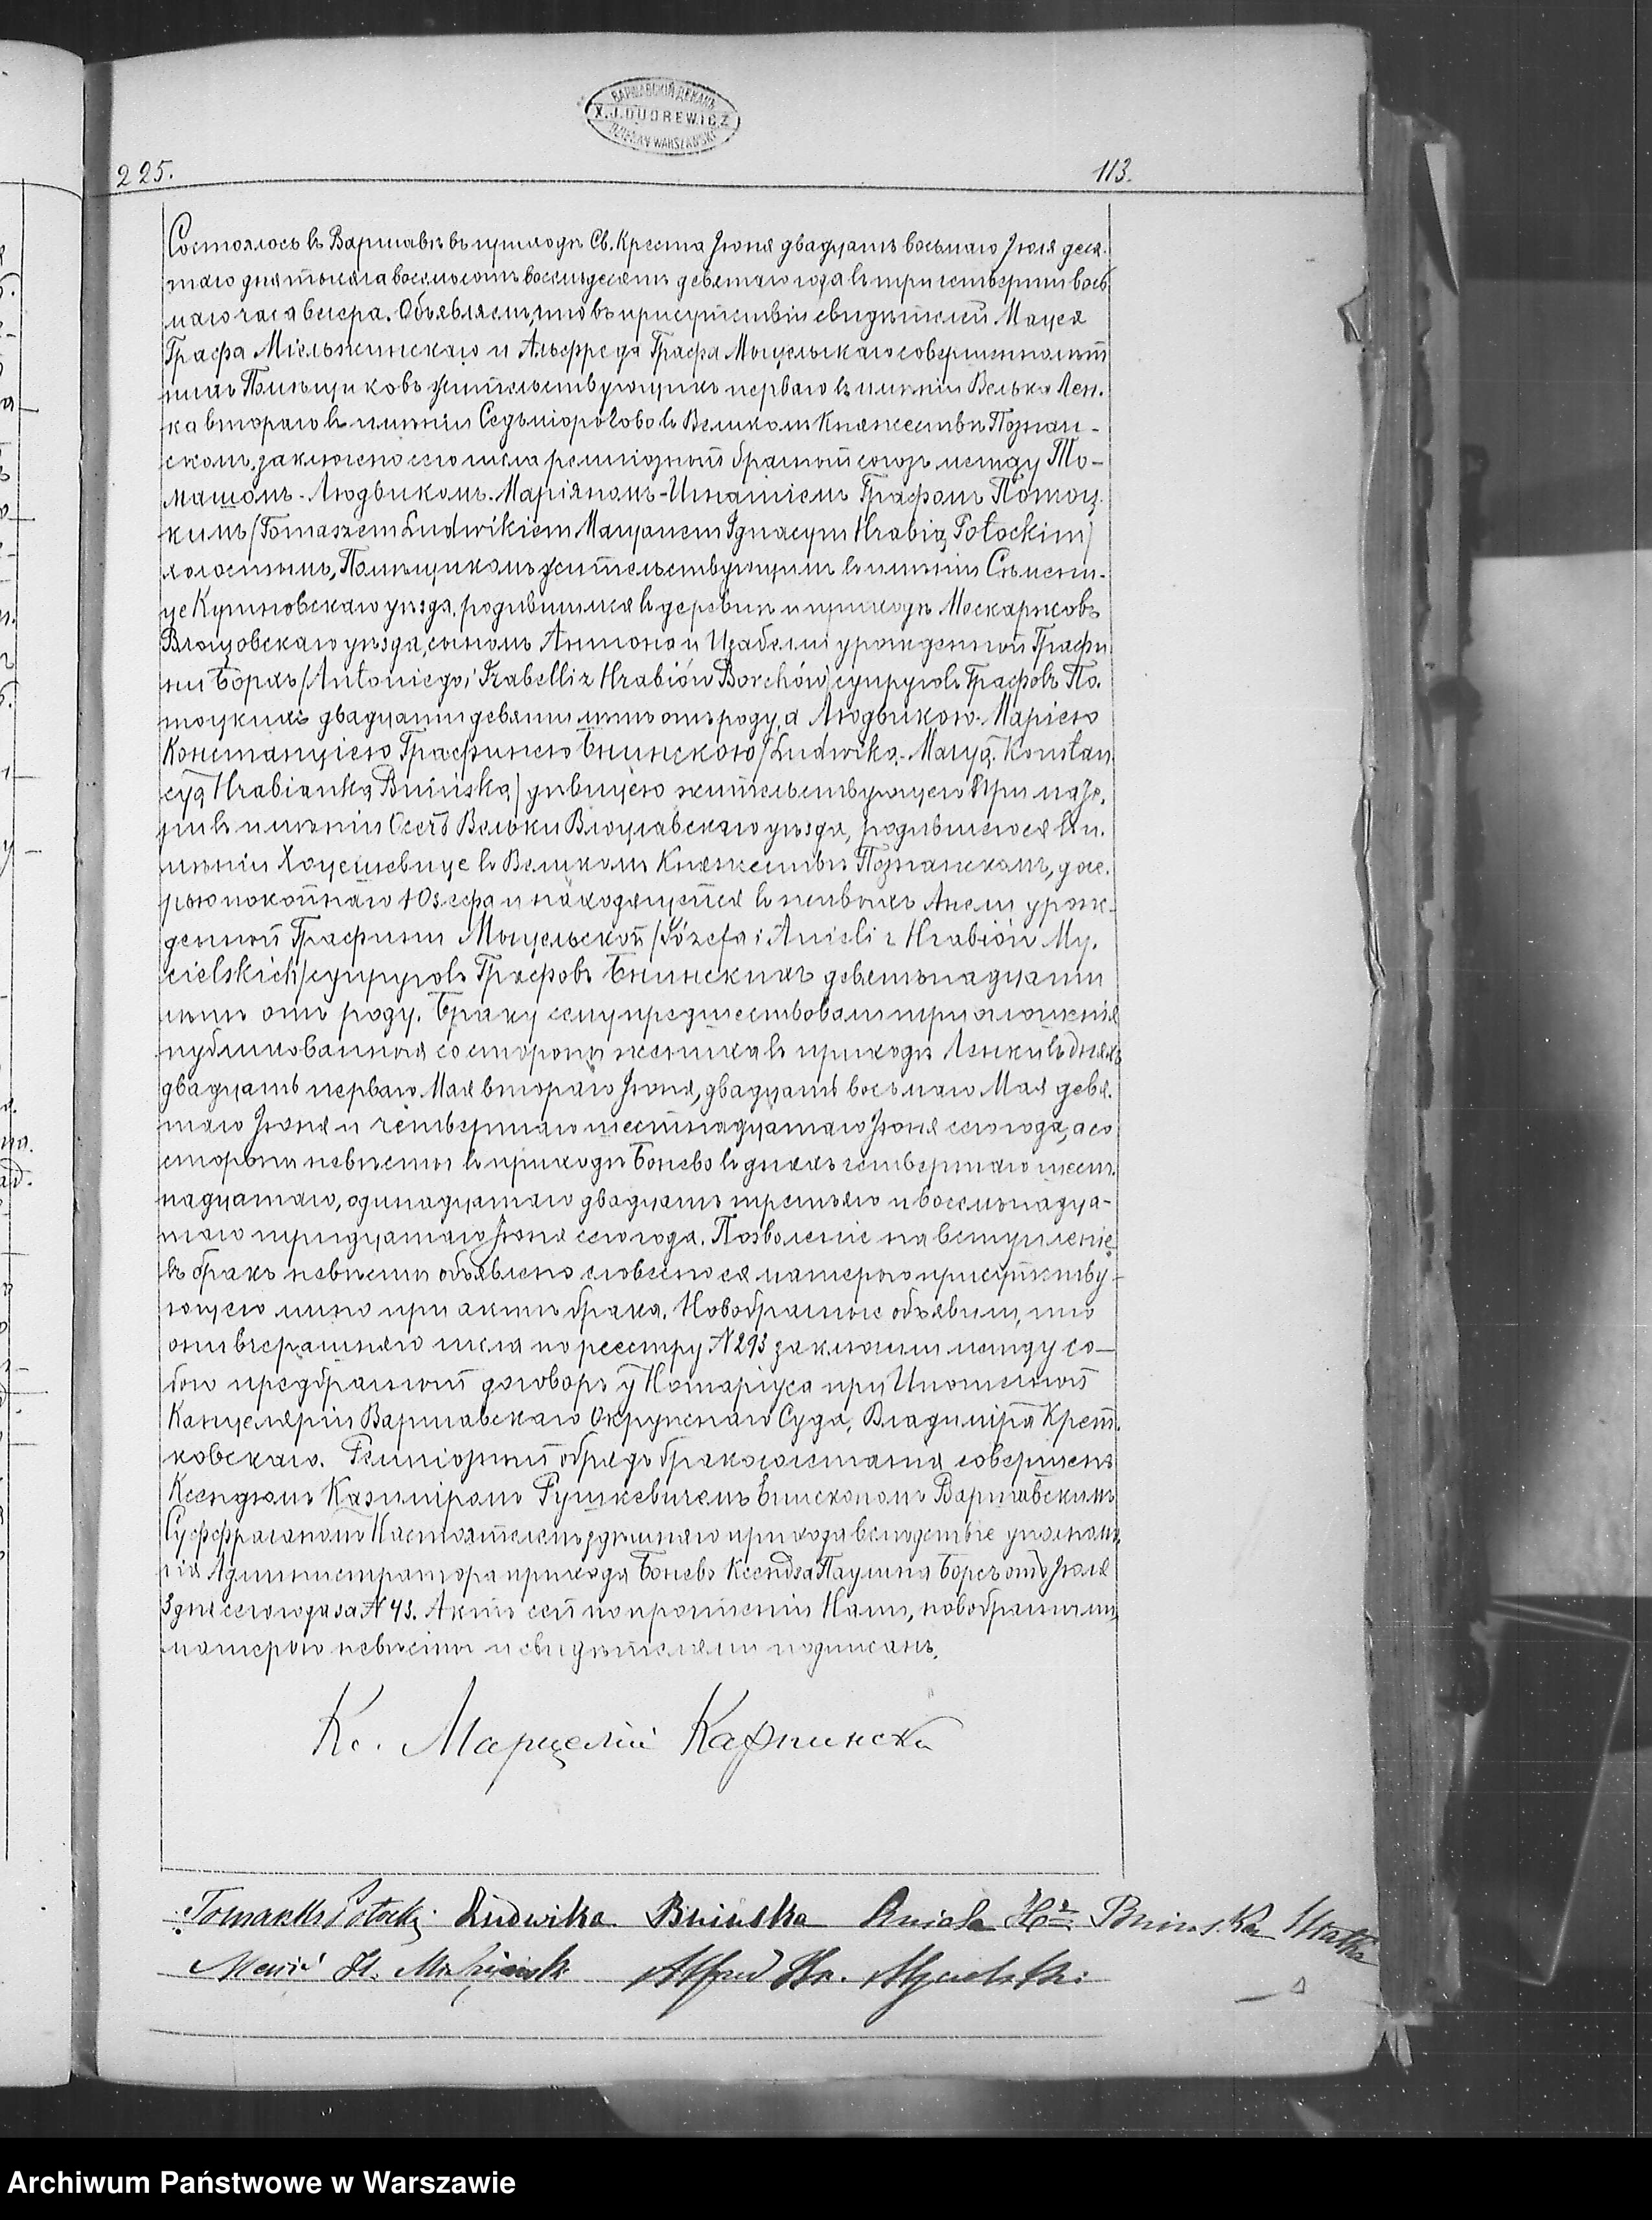 ВАРШАВСКІЙ ДЕКАНЪ
X. J. DUDREWICZ
DZIEKAN WARSZAWSKI
225.
113.
Состоялось въ Варшавѣ въ приходѣ Св. Креста Іюня двадцать восьмаго Іюля деся-
таго дня тысяча восемьсотъ восемьдесятъ девятаго года въ три четверти вось
маго часа вечера. Объявляемъ, что въ присутствіи свидѣтелей Мацея
Графа Міельжинскаго и Альфреда Графа Мыцельскаго совершеннолѣт
нихъ Помѣщиковъ жительствующихъ перваго въ имѣніи Велька Лен-
ка втораго въ имѣніи Седьміорогово въ Великомъ Княжествѣ Познан-
скомъ, заключено сего числа религіозный брачный союзъ между То-
машомъ-Людвикомъ-Маріяномъ-Игнатіемъ Графомъ Потоц-
кимъ /Tomaszem Ludwikiem Maryanem Ignacym Hrabią Potockim/
холостымъ, Помѣщикомъ жительствующимъ въ имѣніи
це Кутновскаго уѣзда, родившимся въ деревнѣ и приходѣ Москаржовъ
Влощовскаго уѣзда, сыномъ Антона и Изабелли урожденной Графи
ни Борхъ /Antoniego i Izabelli z Hrabiów Borchów/ супруговъ Графовъ По-
тоцкихъ двадцати девяти лѣтъ отъ роду, а Людвикою-Маріею
Констанціею Графинею Бнинскою /Ludwiką-Maryą Konstan
cyą Hrabianką Bnińską/ дѣвицею жительствующею при ма
ри въ имѣніи Осечъ Вельки Влоцлавскаго уѣзда, родившеюся въ и-
мѣніи Хоцешевице въ Великомъ Княжествѣ Познанскомъ, доче-
рью покойнаго Юзефа и находящейся въ живыхъ Анели урож-
денной Графини Мыцельской /Józefa i Anieli z Hrabiów My-
cielskich/ супруговъ Графовъ Бнинскихъ девятьнадцати
лѣтъ отъ роду. Браку сему предшествовали три оглашенія
публикованныя со стороны жениха въ приходѣ Ленки въ дняхъ
двадцать перваго Мая втораго Іюня, двадцать восьмаго Мая девя-
таго Іюня и четвертаго шестнадцатаго Іюня сего года, а со
стороны невѣсты въ приходѣ Бонево въ дняхъ четвертаго шест-
надцатаго, одинадцатаго двадцать третьяго и восемьнадца-
таго тридцатаго Іюня сего года. Позволеніе на вступленіе
въ бракъ невѣсты объявлено словесно ея матерью присутству-
ющею лично при актѣ брака. Новобрачные объявили, что
они вчерашняго числа по реестру N 293 заключили между со-
бою предбрачный договоръ у Нотаріуса при Ипотечной
Канцеляріи Варшавскаго Окружнаго Суда, Владиміра Крет-
ковскаго. Религіозный обрядъ бракосочетанія совершенъ
Ксендзомъ Казиміромъ Рушкевичемъ Епископомъ Варшавскимъ
Суффраганомъ Настоятелемъ здѣшняго прихода вслѣдствіе уполномо
чія Администратора прихода Бонево Ксендза Паулина Борсъ отъ Іюля
3 дня сего года за N 43. Актъ сей по прочтеніи Нами, новобрачными,
матерью невѣсты и свидѣтелями подписанъ.
Кс. Марцелій Карпински
Tomasz Hr Potocki Ludwika Bnińska Aniela Hr. Bnińska Matka
Maciej H. Mielżyński Alfred Hr. Mycielski
Archiwum Państwowe w Warszawie